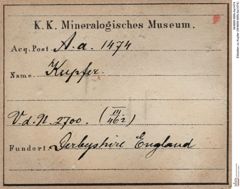 K. K. Mineralogisches Museum.
Acq. Post A. a. 1474
Name Kupfer.
V. d. N. 2700. (IV/462)
Fundort Derbyshire England